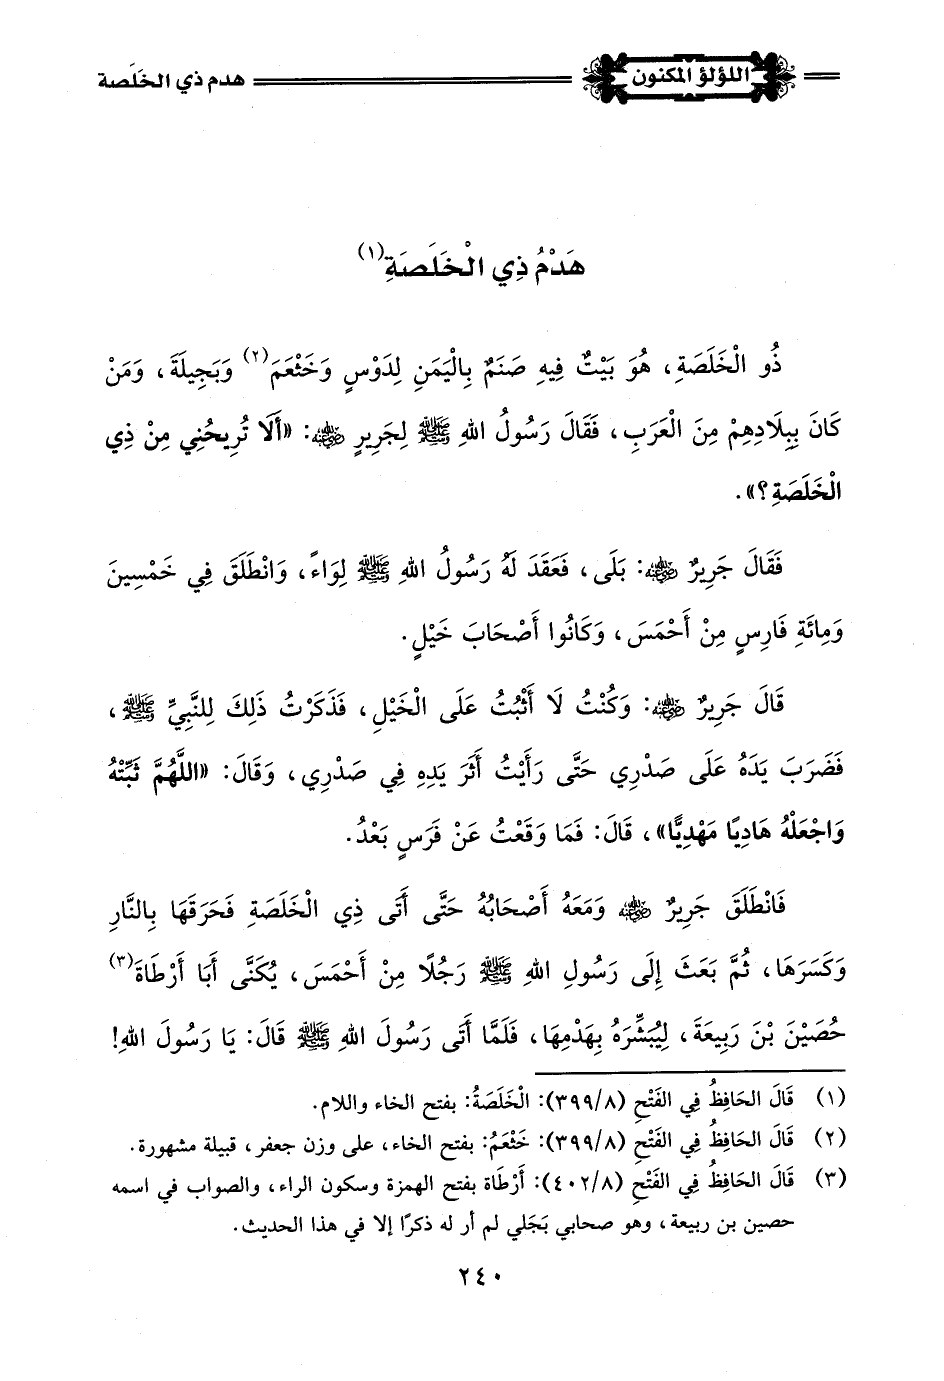 اللؤلؤ المكنون هدم ذي الخَلَصة
هَدْمُ ذِي الْخَلَصَةِ(١)
ذُو الْخَلَصَةِ، هُوَ بَيْتٌ فِيهِ صَنَمٌ بِالْيَمَنِ لِدَوْسٍ وَخَثْعَمَ(٢) وَبَجِيلَةَ، وَمَنْ
كَانَ بِبِلَادِهِمْ مِنَ الْعَرَبِ، فَقَالَ رَسُولُ اللهِ ﷺ لِجَرِيرٍ رضي الله عنه: «أَلَا تُرِيحُنِي مِنْ ذِي
الْخَلَصَةِ؟».
فَقَالَ جَرِيرٌ رضي الله عنه: بَلَى، فَعَقَدَ لَهُ رَسُولُ اللهِ ﷺ لِوَاءً، وَانْطَلَقَ فِي خَمْسِينَ
وَمِائَةِ فَارِسٍ مِنْ أَحْمَسَ، وَكَانُوا أَصْحَابَ خَيْلٍ.
قَالَ جَرِيرٌ رضي الله عنه: وَكُنْتُ لَا أَثْبُتُ عَلَى الْخَيْلِ، فَذَكَرْتُ ذَلِكَ لِلنَّبِيِّ ﷺ،
فَضَرَبَ يَدَهُ عَلَى صَدْرِي حَتَّى رَأَيْتُ أَثَرَ يَدِهِ فِي صَدْرِي، وَقَالَ: «اللَّهُمَّ ثَبِّتْهُ
وَاجْعَلْهُ هَادِيًا مَهْدِيًّا»، قَالَ: فَمَا وَقَعْتُ عَنْ فَرَسٍ بَعْدُ.
فَانْطَلَقَ جَرِيرٌ رضي الله عنه وَمَعَهُ أَصْحَابُهُ حَتَّى أَتَى ذِي الْخَلَصَةِ فَحَرَقَهَا بِالنَّارِ
وَكَسَرَهَا، ثُمَّ بَعَثَ إِلَى رَسُولِ اللهِ ﷺ رَجُلًا مِنْ أَحْمَسَ، يُكَنَّى أَبَا أَرْطَاةَ(٣)
حُصَيْنَ بْنَ رَبِيعَةَ، لِيُبَشِّرَهُ بِهَدْمِهَا، فَلَمَّا أَتَى رَسُولَ اللهِ ﷺ قَالَ: يَا رَسُولَ اللهِ!
(١) قَالَ الحَافِظُ فِي الفَتْحِ (٣٩٩/٨): الْخَلَصَةُ: بفتح الخاء واللام.
(٢) قَالَ الحَافِظُ فِي الفَتْحِ (٣٩٩/٨): خَثْعَمُ: بفتح الخاء، على وزن جعفر، قبيلة مشهورة.
(٣) قَالَ الحَافِظُ فِي الفَتْحِ (٤٠٢/٨): أَرْطَاة بفتح الهمزة وسكون الراء، والصواب في اسمه
حصين بن ربيعة، وهو صحابي بَجَلي لم أر له ذكرًا إلا في هذا الحديث.
٢٤٠